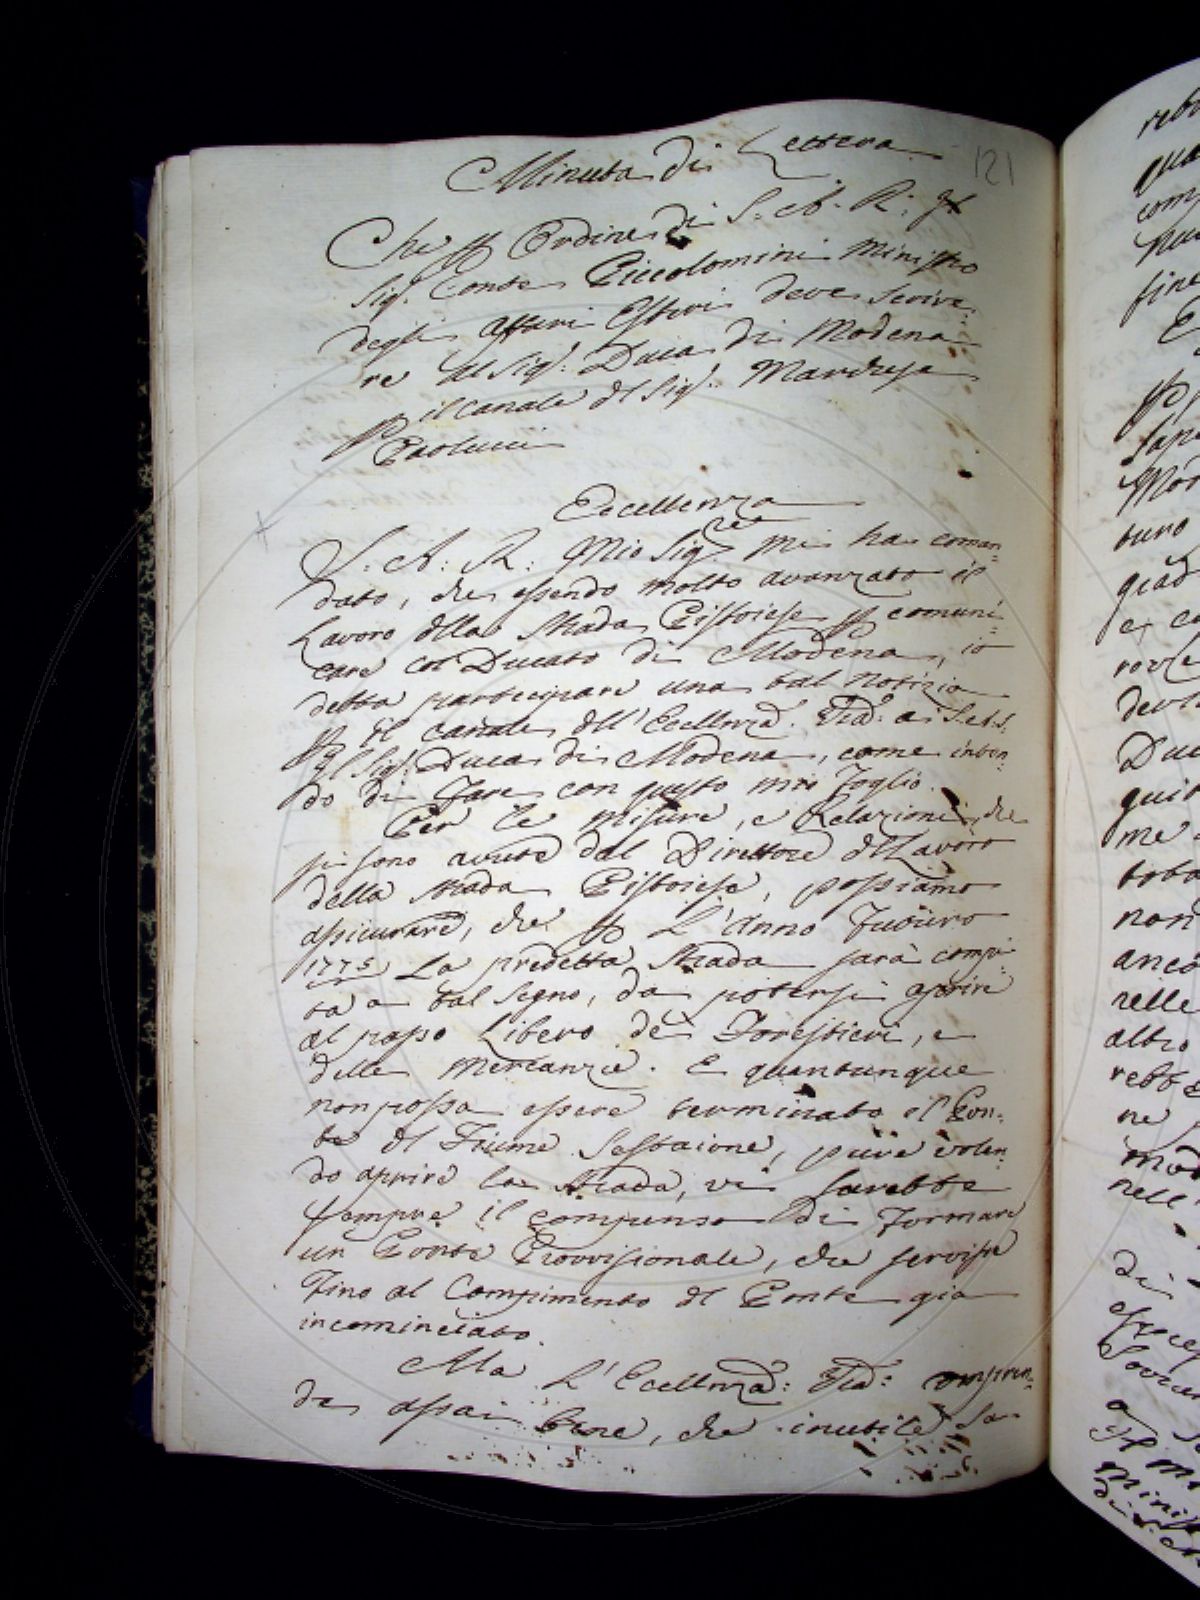 121
Minuta di Lettera
Che p Ordine di S. A. R. Il
Sig. Conte Piccolomini Ministro
degli affari Esteri deve scrive:
re al Sig. Duca di Modena
p il canale dl Sig. Marchese
Paolucci
Eccellenza
S. A. R. Mio Sig.re mi ha coman=
dato, che essendo molto avanzato il
Lavoro dlla Strada Pistoiese p comuni=
care col Ducato di Modena, io
debba partecipare una tal notizia
p il canale dll'Ecellnza. Vra: a S. A. S.
il Sig. Duca di Modena, come inten=
do di Fare con questo mio Foglio.
Per le misure, e Relazioni, che
si sono avute dal Direttore dl Lavoro
della strada Pistoiese, possiamo
assicurare, che p L'Anno Futuro
1775 La predetta Strada sarà compi
ta a tal segno, da potersi aprire
al passo Libero dei Forestieri, e
delle Mercanzie. E quantunque
non possa essere terminato il Pon=
te dl Fiume Sestaione, pure volen=
do aprire la Strada, vi sarebbe
sempre il compenso di Formare
un Ponte Provvisionale, che servisse
Fino al Compimento dl Ponte gia
incominciato.
Ma L'Ecellnza: Vra: compren=
de assai bene, che inutile sa